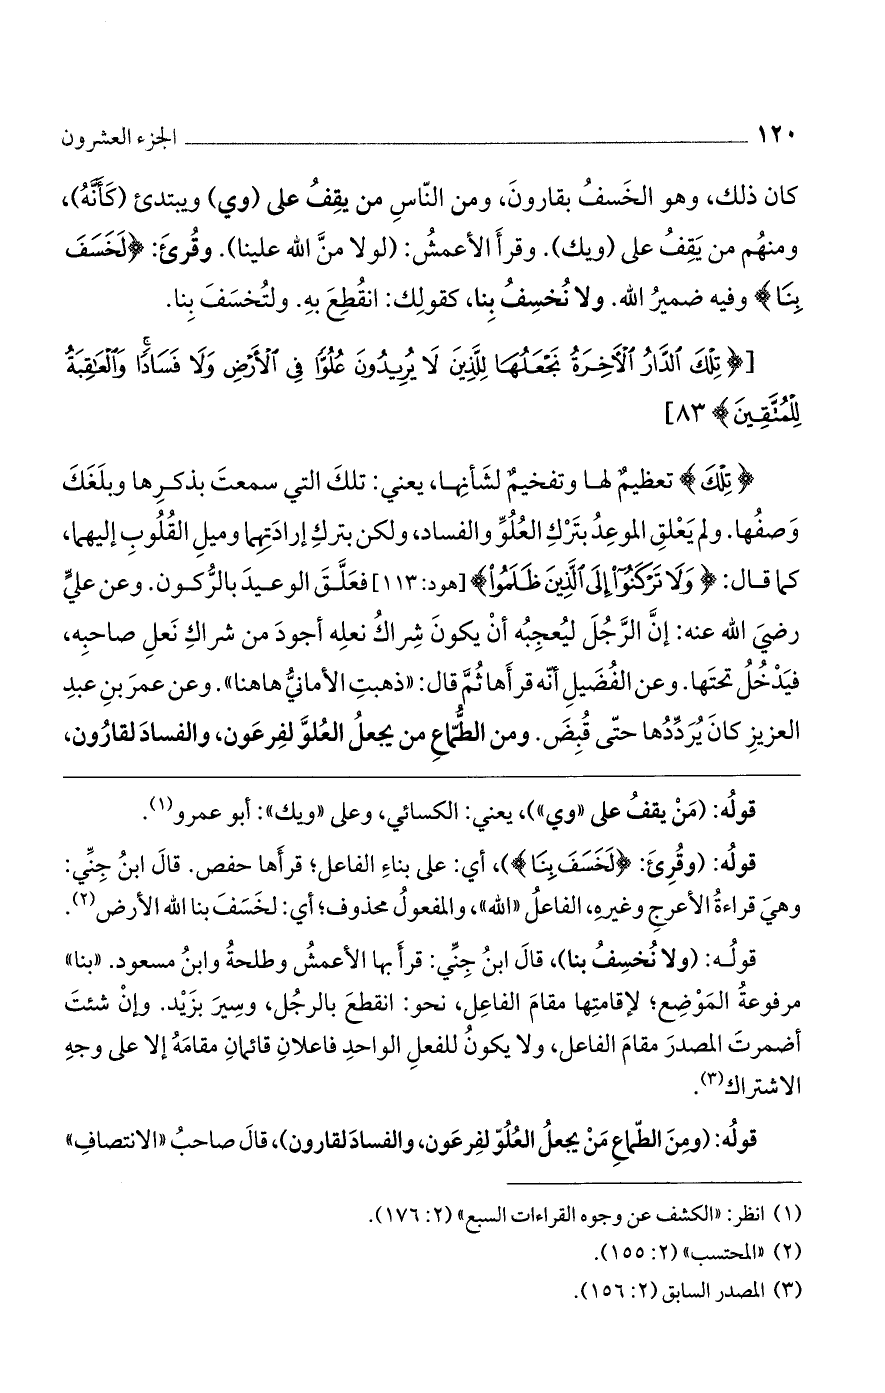 ١٢٠ ــــــــــــــــــــ الجزء العشرون
كان ذلك، وهو الخَسفُ بقارونَ، ومن النّاسِ من يقِفُ على (وي) ويبتدئ (كَأَنَّهُ)،
ومنهُم من يَقِفُ على (ويك). وقرأَ الأعمشُ: (لولا منَّ الله علينا). وقُرئَ: ﴿لَخَسَفَ
بِنَا﴾ وفيه ضميرُ الله. ولا نُخسِفُ بِنا، كقولِك: انقُطِعَ بهِ. ولتُخسَفَ بِنا.
[﴿تِلْكَ ٱلدَّارُ ٱلْآخِرَةُ نَجْعَلُهَا لِلَّذِينَ لَا يُرِيدُونَ عُلُوًّا فِي ٱلْأَرْضِ وَلَا فَسَادًا ۚ وَٱلْعَٰقِبَةُ
لِلْمُتَّقِينَ﴾ ٨٣]
﴿تِلْكَ﴾ تعظيمٌ لهـا وتفخيمٌ لشَأنِهـا، يعني: تلكَ التي سمعتَ بذكـرِها وبلَغَكَ
وَصفُها. ولم يَعْلقِ الموعِدُ بتَرْكِ العُلُوِّ والفساد، ولكن بتركِ إرادَتِهِما وميلِ القُلُوبِ إليهِما،
كما قـال: ﴿وَلَا تَرْكَنُوٓا۟ إِلَى ٱلَّذِينَ ظَلَمُوا۟﴾ [هود: ١١٣] فعَلَّـقَ الوعيـدَ بالرُّكـون. وعن عليٍّ
رضيَ الله عنه: إنَّ الرَّجُلَ ليُعجِبُه أنْ يكونَ شِراكُ نعلِه أجودَ من شراكِ نَعلِ صاحبِه،
فيَدْخُلُ تحتَها. وعن الفُضَيلِ أنّه قرأَها ثُمَّ قال: «ذهبتِ الأمانيُّ هاهنا». وعن عمرَ بنِ عبدِ
العزيزِ كانَ يُرَدِّدُها حتّى قُبِضَ. ومن الطُّمّاعِ من يجعلُ العُلوَّ لفِرعَون، والفسادَ لقارُون،
قولُه: (مَنْ يقفُ على «وي»)، يعني: الكسائي، وعلى «ويك»: أبو عمرو(١).
قولُه: (وقُرِئَ: ﴿لَخَسَفَ بِنَا﴾)، أي: على بناءِ الفاعل؛ قرأَها حفص. قالَ ابنُ جِنِّي:
وهيَ قراءةُ الأعرجِ وغيرِه، الفاعلُ «الله»، والمفعولُ محذوف؛ أي: لخَسَفَ بنا الله الأرض(٢).
قولُـه: (ولا نُخسِفُ بنا)، قالَ ابنُ جِنِّي: قرأَ بها الأعمشُ وطلحةُ وابنُ مسعود. «بنا»
مرفوعةُ المَوْضِع؛ لإقامتِها مقامَ الفاعِل، نحو: انقطعَ بالرجُل، وسِيرَ بزَيْد. وإنْ شئتَ
أضمرتَ المصدرَ مقامَ الفاعل، ولا يكونُ للفعلِ الواحدِ فاعلانِ قائمانِ مقامَهُ إلا على وجهِ
الاشتراك(٣).
قولُه: (ومِنَ الطّماعِ مَنْ يجعلُ العُلُوّ لفِرعَون، والفسادَ لقارون)، قالَ صاحبُ «الانتصافِ»
(١) انظر: «الكشف عن وجوه القراءات السبع» (٢: ١٧٦).
(٢) «المحتسب» (٢: ١٥٥).
(٣) المصدر السابق (٢: ١٥٦).